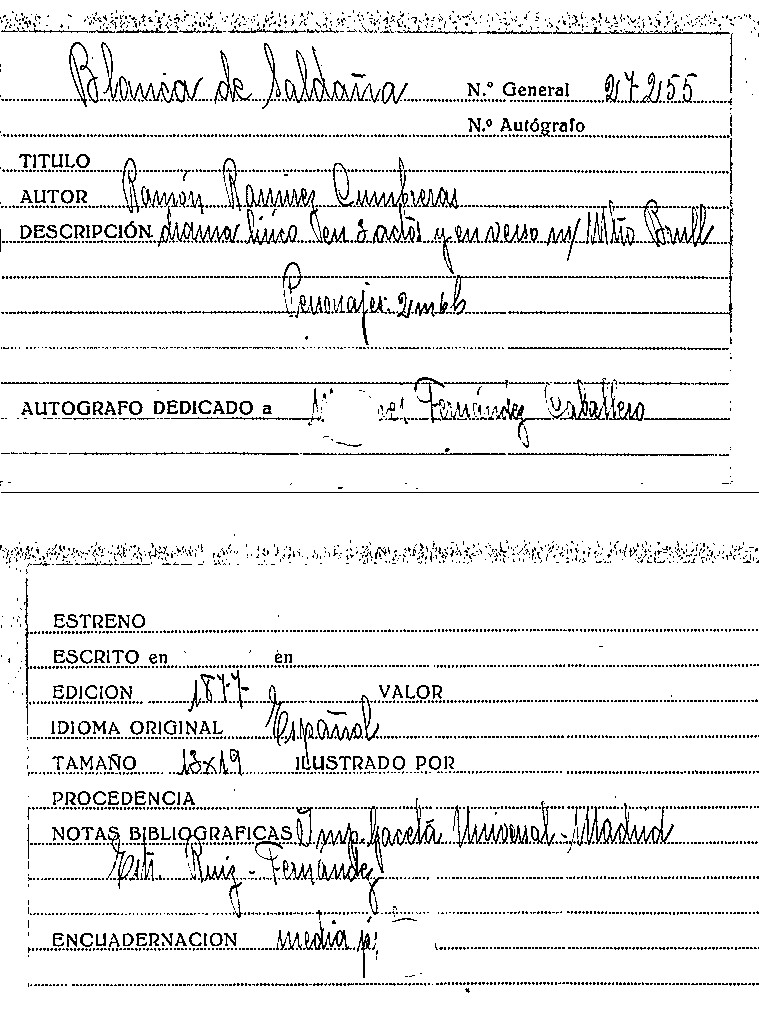 Blanca de Saldaña N.º General 27255
N.º Autógrafo
TITULO
AUTOR Ramón Ramirez Cumbreras
DESCRIPCIÓN drama lírico en 3 actos y en verso m/ Mtro Brull
Personajes: 2m 6h
AUTOGRAFO DEDICADO a Fernández Caballero
ESTRENO
ESCRITO en en
EDICION 1877 VALOR
IDIOMA ORIGINAL Español
TAMAÑO 13x19 ILUSTRADO POR
PROCEDENCIA
NOTAS BIBLIOGRAFICAS Imp. Gaceta Universal-Madrid
Estr. Ruiz-Fernández
ENCUADERNACION media